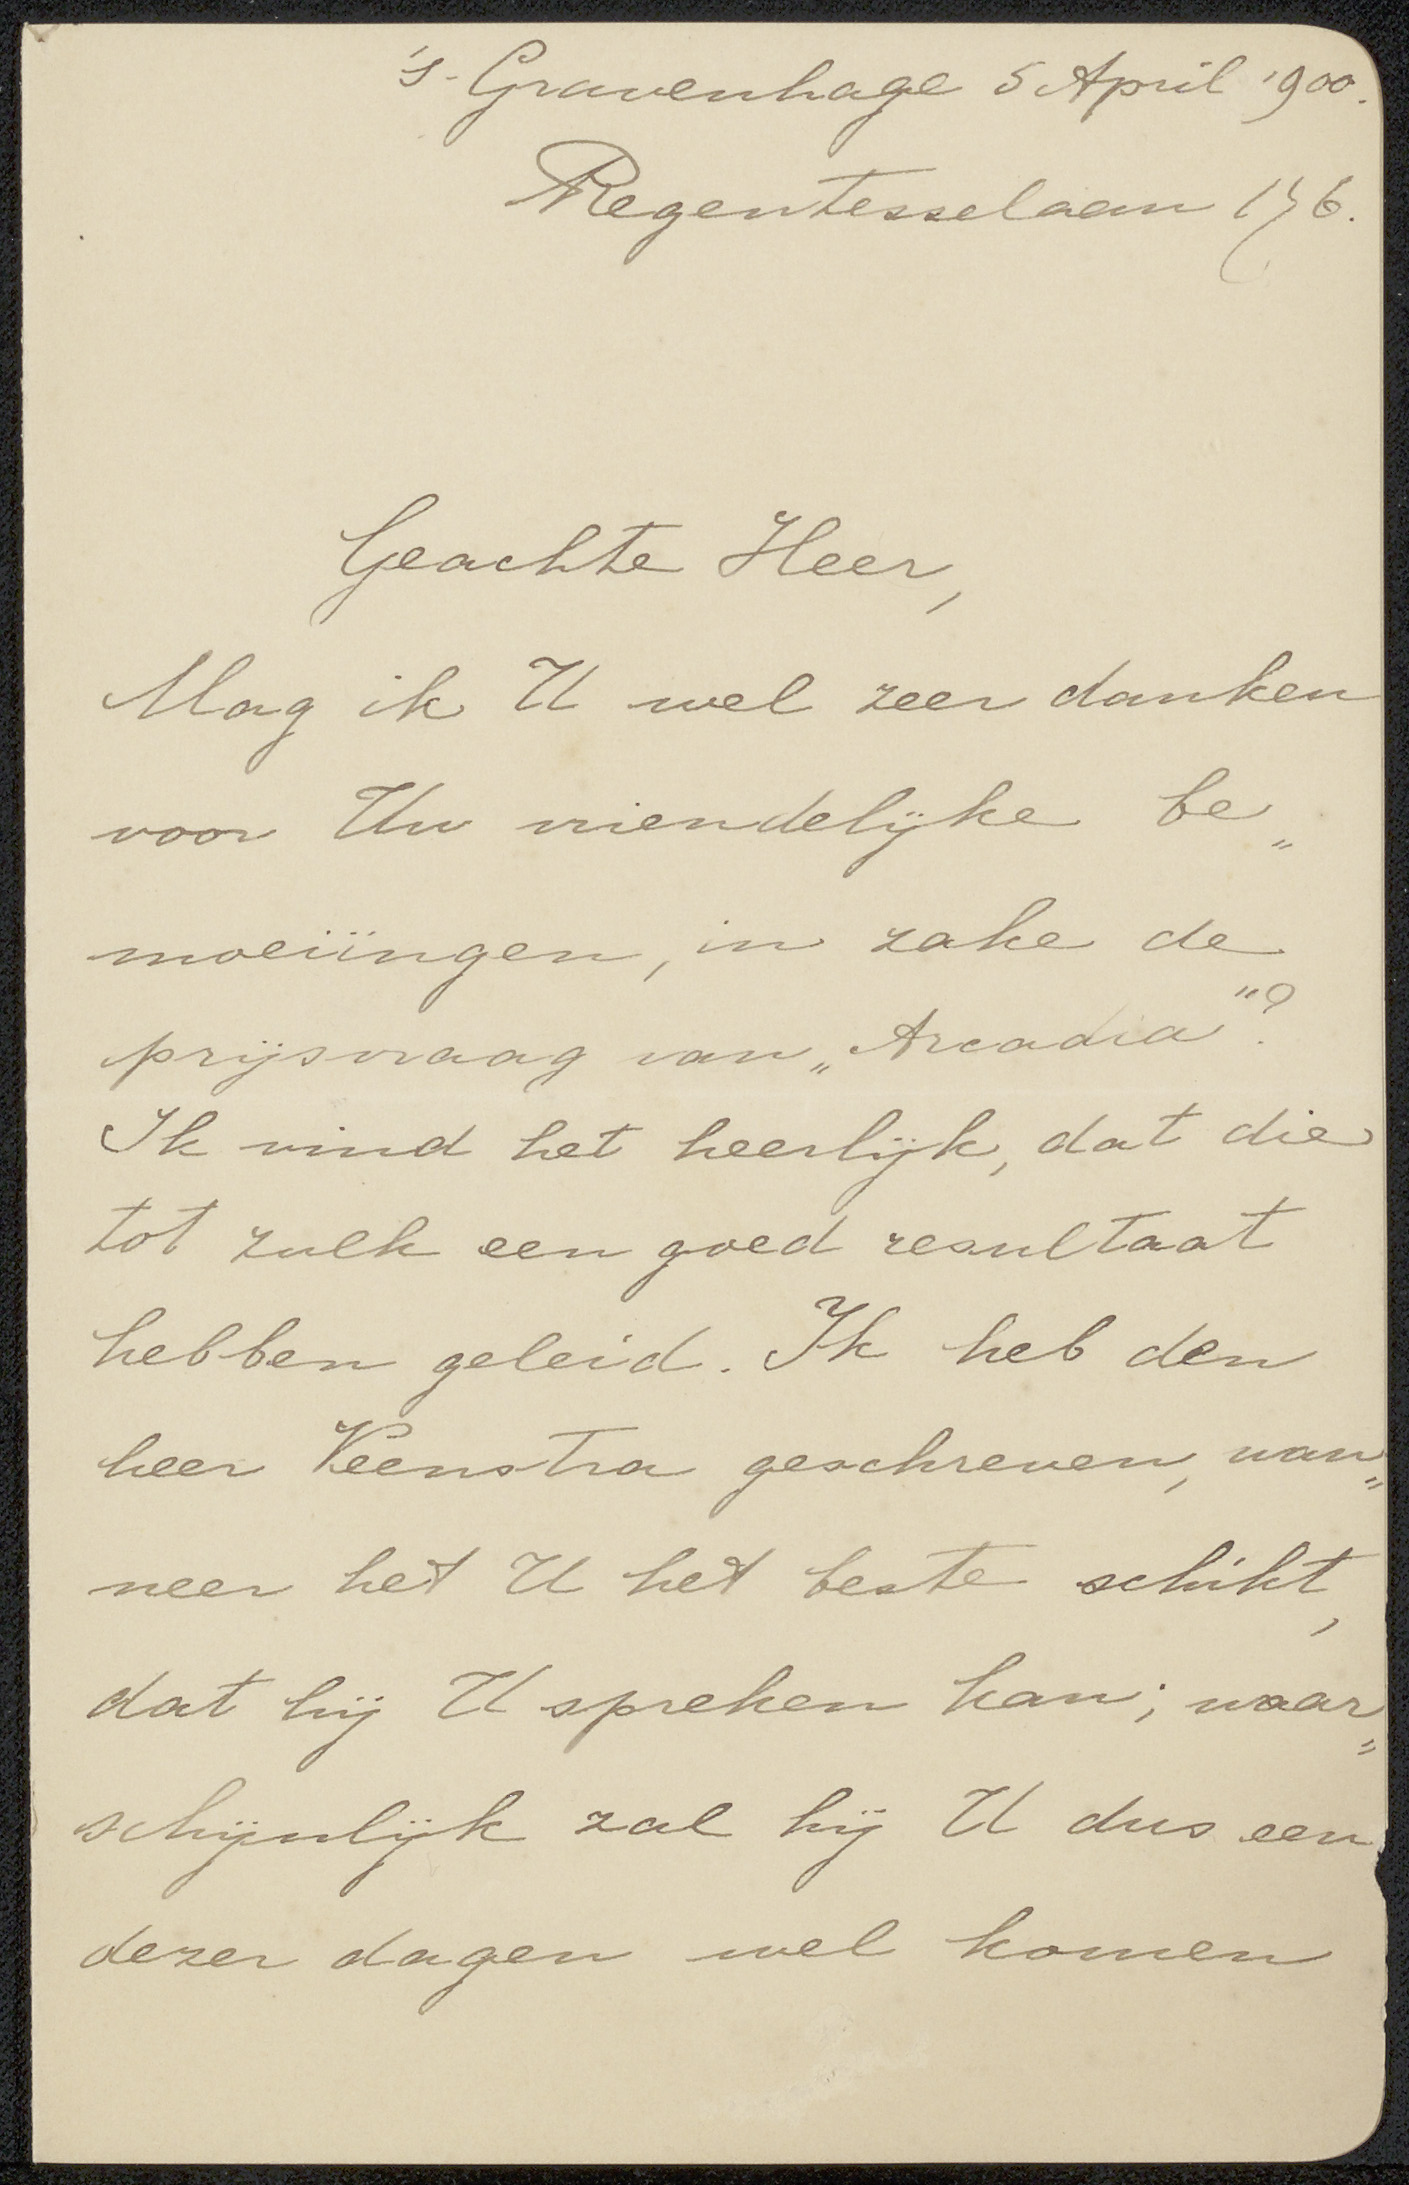 's-Gravenhage 5 April 1900.
Regentesselaan 176.
Geachte Heer,
Mag ik U wel zeer danken
voor Uw vriendelijke be„
moeiïngen, in zake de
prijsvraag van „Arcadia"?
Ik vind het heerlijk, dat die
tot zulk een goed resultaat
hebben geleid. Ik heb den
heer Veenstra geschreven, wan„
neer het U het beste schikt,
dat hij U spreken kan; waar„
schijnlijk zal hij U dus een
dezer dagen wel komen